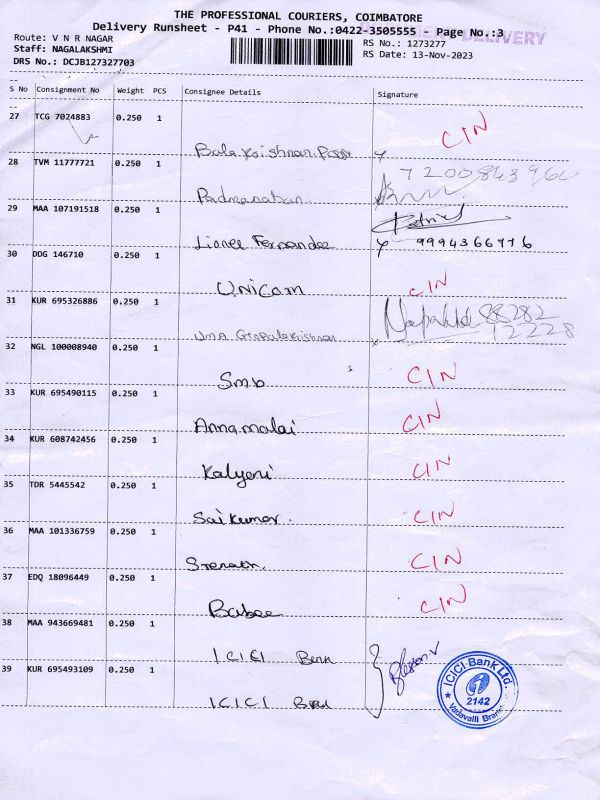 THE PROFESSIONAL COURIERS, COIMBATORE
Delivery Runsheet - P41 - Phone No.:0422-3505555 - Page No.:3
DELIVERY
Route: V N R NAGAR
RS No.: 1273277
Staff: NAGALAKSHMI
RS Date: 13-Nov-2023
DRS No.: DCJB127327703
S No Consignment No Weight PCS Consignee Details Signature
27 TCG 7024883 0.250 1
Balakrishnan CIN
28 TVM 11777721 0.250 1
Padmanaban 7200843960
29 MAA 107191518 0.250 1
Lionel Fernandes 9994366776
30 DDG 146710 0.250 1
Unicom CIN
31 KUR 695326886 0.250 1
Uma Gopalakrishnan 88282
12228
32 NGL 100008940 0.250 1
Smb CIN
33 KUR 695490115 0.250 1
Annamalai CIN
34 KUR 608742456 0.250 1
Kalyani CIN
35 TDR 5445542 0.250 1
Saikumar. CIN
36 MAA 101336759 0.250 1
CIN
37 EDQ 18096449 0.250 1
Babee CIN
38 MAA 943669481 0.250 1
ICICI Bank
39 KUR 695493109 0.250 1
ICICI Bank
ICICI Bank Ltd.
2142
Vadavalli Branch